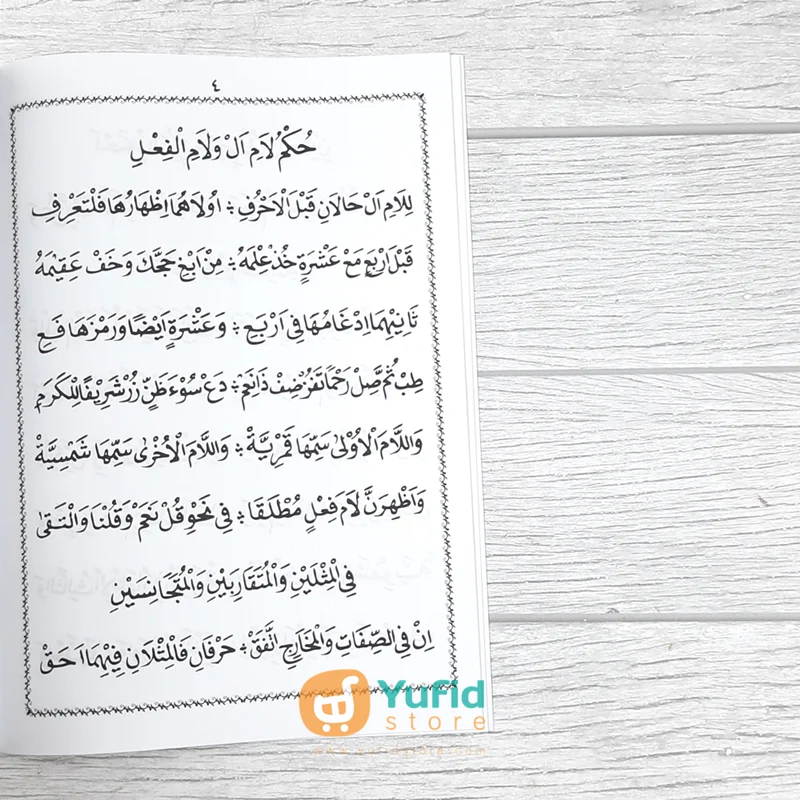 ٤
حُكْمُ لَامِ الْ وَلَامِ الْفِعْلِ
لِلَامِ الْ حَالَانِ قَبْلَ الْاَحْرُفِ ؞ اُولَاهُمَا اِظْهَارُهَا فَلْتَعْرِفِ
قَبْلَ ارْبَعٍ مَعْ عَشْرَةٍ خُذْ عِلْمَهُ ؞ مِنْ اَبْغِ حَجَّكَ وَخَفْ عَقِيْمَهُ
ثَانِيْهِمَا اِدْغَامُهَا فِى اَرْبَعٍ ؞ وَعَشْرَةٍ اَيْضًا وَرَمْزَهَا فَعِ
طِبْ ثُمَّ صِلْ رَحْمًا تَفُزْ ضِفْ ذَا نِعَمْ ؞ دَعْ سُوْءَ ظَنٍّ زُرْ شَرِيْفًا لِلْكَرَمِ
وَاللَّامَ الْاُوْلٰى سَمِّهَا قَمَرِيَّةْ ؞ وَاللَّامَ الْاُخْرٰى سَمِّهَا شَمْسِيَّةْ
وَاَظْهِرَنَّ لَامَ فِعْلٍ مُطْلَقَا ؞ فِى نَحْوِ قُلْ نَعَمْ وَقُلْنَا وَالْتَقٰى
فِى الْمِثْلَيْنِ وَالْمُتَقَارِبَيْنِ وَالْمُتَجَانِسَيْنِ
اِنْ فِى الصِّفَاتِ وَالْمَخَارِجِ اتَّفَقْ ؞ حَرْفَانِ فَالْمِثْلَانِ فِيْهِمَا اَحَقْ
Yufid
store
www.yufidstore.com